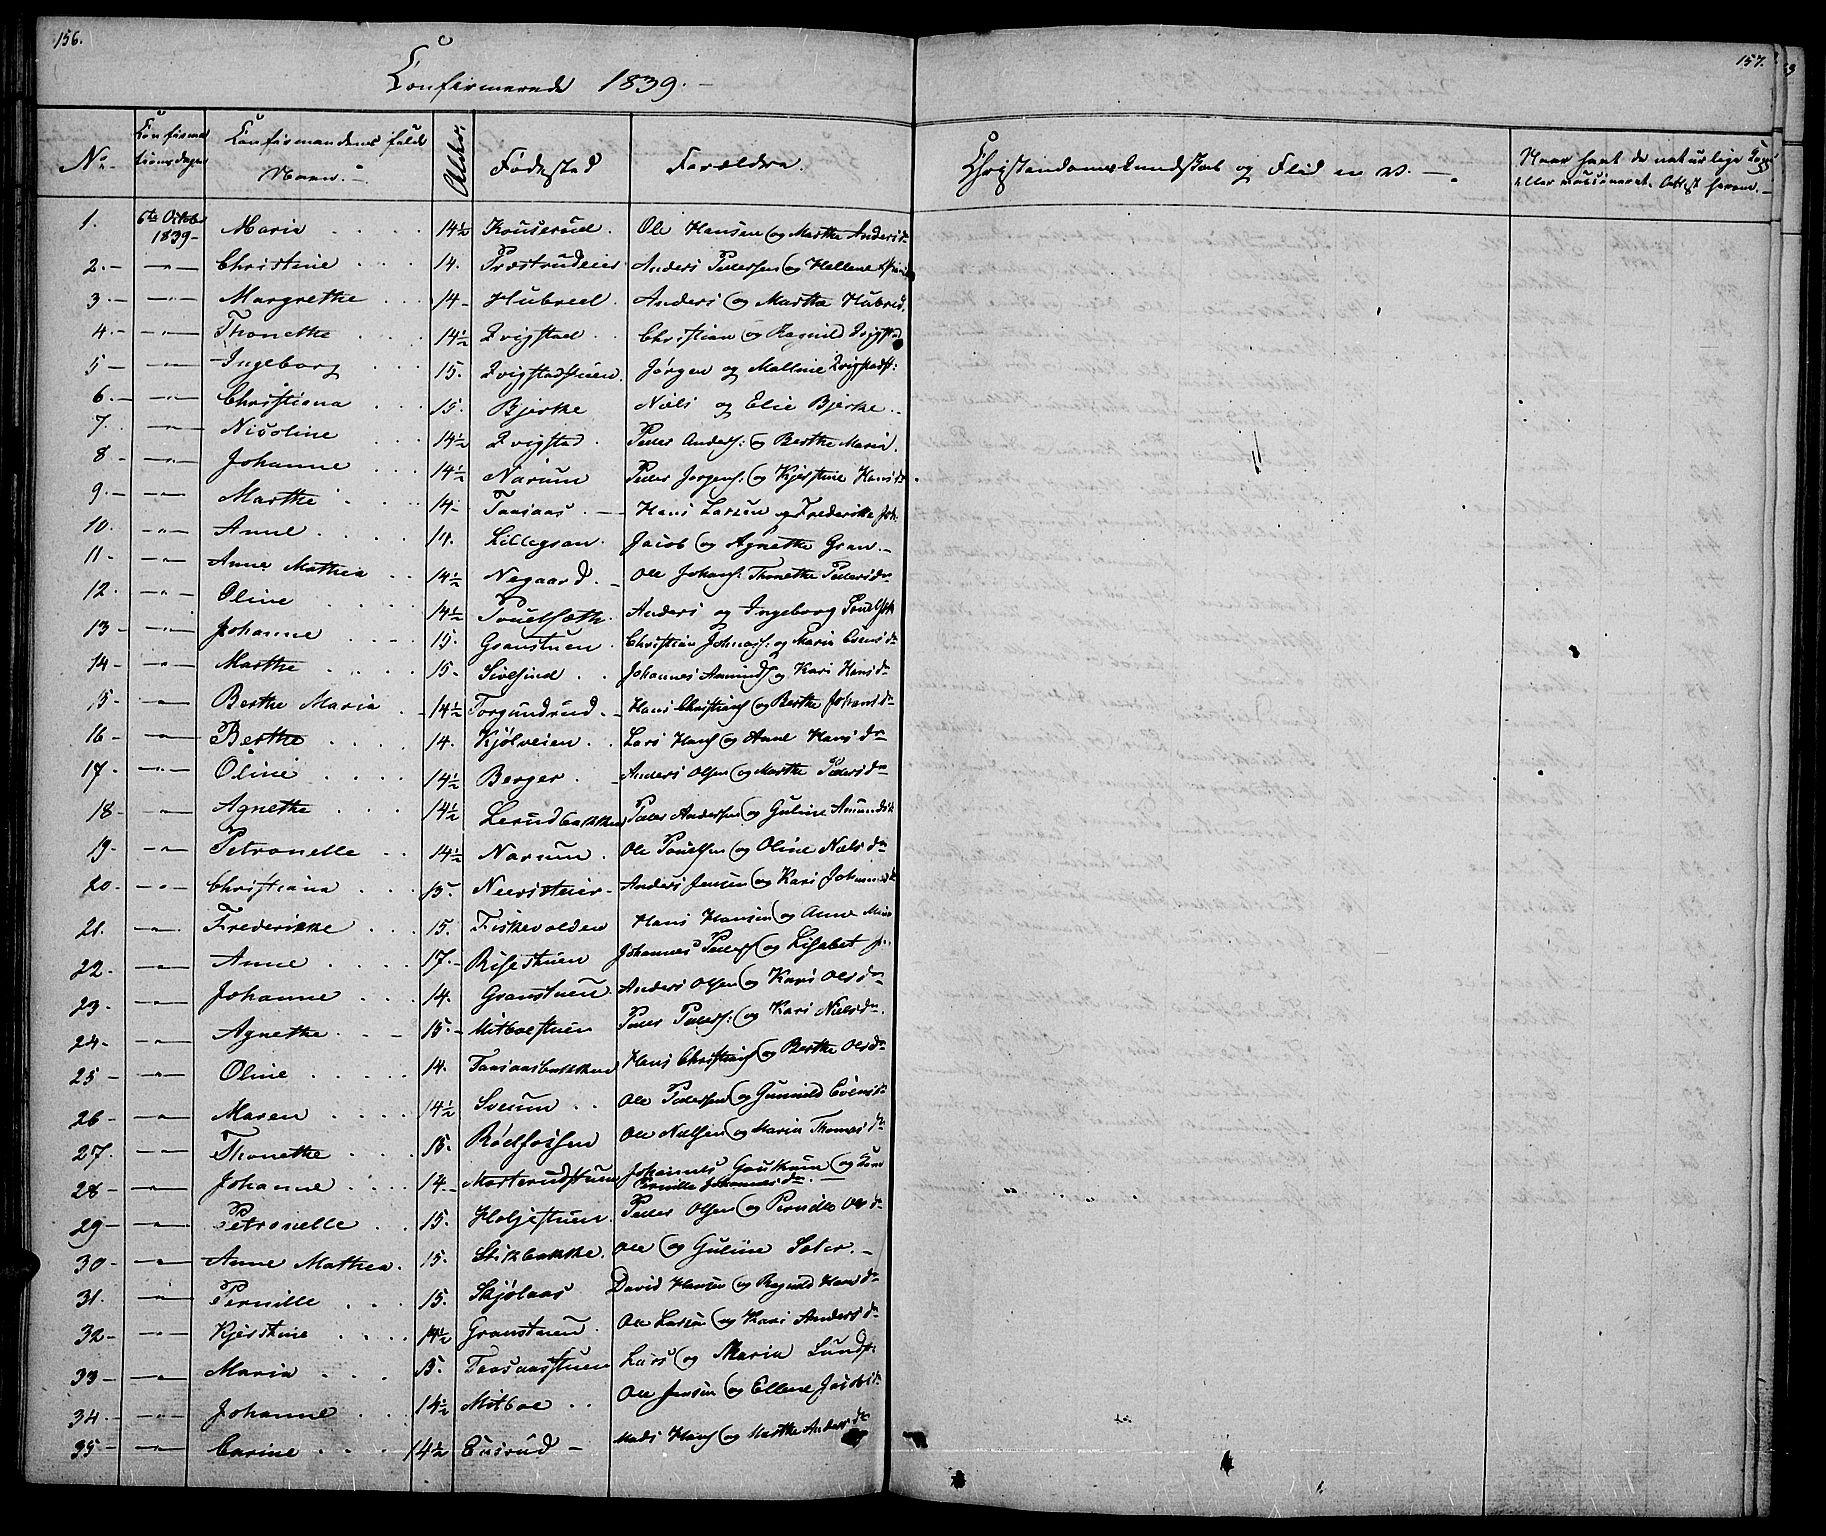 156.
Confirmerede 1839.
157.
No
Confirma
tionsdagen
Confirmandens fulde
Navn.
Alder.
Fødested
Forældre.
Christendomskundskab og Flid m. v.
Naar havt de naturlige Kopper
eller vaccineret. Attest herom.
1. 6te Octobr 1839 Maria 14½ Kouserud. Ole Hansen og Marthe Andersdr
2. " Christine 14. Præstrudeier Anders Pedersen og Hellene
3. " Margrethe 14 Hubred. Anders og Marthe Hubred.
4. " Thonette 14½ Qvigstad Christian og Ragnild Qvigstad
5 " Ingeborg 15. Qvigstadstuen. Jørgen og Mallene Qvigstadst:
6. " Christiana 15. Bjerke Niels og Elie Bjerke.
7. " Nicoline 14½ Qvigstad. Peder Anders: og Berthe Maria.
8 " Johanne 14½ Narum Peder Jørgens: og Kjerstine Hansdr
9. " Marthe 14 Taasaas. Hans Larsen og Frederikke Joh.
10. " Anne 14. Lillegran. Jacob og Agnethe Gran.
11. " Anne Mathea 14½ Negaard. Ole Johans: Thonette Pedersdr
12. " Oline 14½ Pouelsæth. Anders og Ingeborg Pouelsæth
13 " Johanne 15. Granstuen. Christian Johnas: og Maria Evensdr
14 " Marthe 15. Sivesind Johannes Amunds og Kari Hansdr
15 " Berthe Maria 14½ Torgundrud. Hans Christians og Berthe Johansdr
16 " Berthe 14. Kjølveien Lars Hans og Anne Hansdr
17. " Oline 14½ Berger. Anders Olsen og Marthe Pedersdr
18 " Agnethe 14½ Lerudbakken Peder Andersen og Guline Amundsdr
19. " Petronelle 14½ Narum. Ole Pouelsen og Oline Nielsdr
20. " Christiana 15 Neeristeier Anders Jensen og Kari Johannesdr
21. " Frederikke 15. Fiskevolden Hans Hansen og Anne Marie
22. " Anne 17. Risestuen Johannes Peders og Lisabet
23. " Johanne 14. Granstuen. Anders Olsen og Kari Olsdr
24. " Agnethe 15. Mitboestuen Peder Peders: og Kari Nielsdr.
25 " Oline 14. Taasaasbakken Hans Christians og Berthe Olsdr
26 " Maren 14½ Sveum Ole Pedersen og Gunnild Evensdr
27. " Thonette 15. Rødfossen Ole Nielsen og Maria Thomesdr
28 " Johanne 14. Mosterudstuen Johannes og Kone
Pernille Johannesdr.
29 " Petronelle 15. Holjestuen Peder Olsen og Pernille Olsdr
30 " Anne Mathea. 15. Stikbakke. Ole og Guline Sater.
31. " Pernille 15. Skjølaas David Hansen og Ragnild Hansdr
32 " Kjerstine 14½ Granstuen. Ole Larsen og Kari Andersdr
33 " Maria 15. Taasaasstuen Lars og Maria Lundst.
34. " Johanne 14½ Mitboe Ole Jensen og Ellene Jacobsdr
35 " Carine 14½ Eusrud Mads Hans og Marthe Andersdr